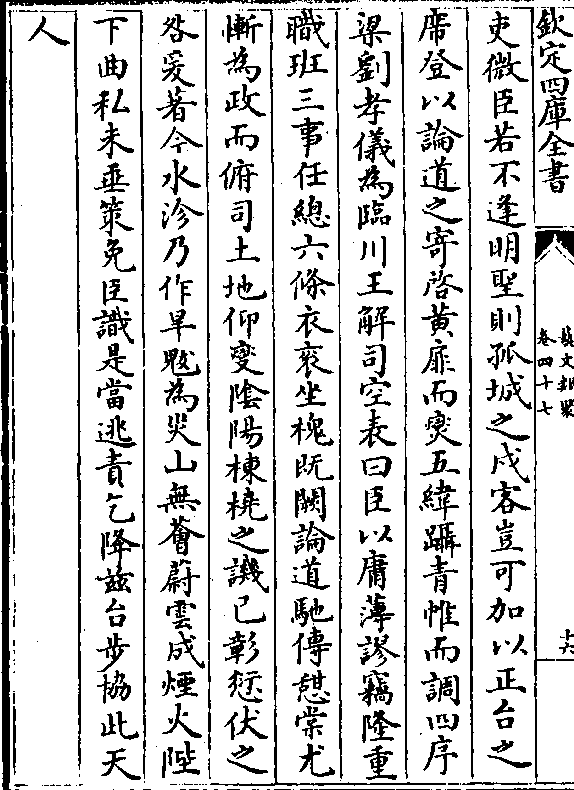 欽定四庫全書
藝文類聚
卷四十七
十六
吏微臣若不逢明聖則孤城之戍客豈可加以正台之
席登以論道之寄啓黄扉而爕五緯躡青帷而調四序
梁劉孝儀為臨川王解司空表曰臣以庸薄謬竊隆重
職班三事任總六條衣衮坐槐既闕論道馳傳憇棠尤
慚為政而俯司土地仰爕陰陽棟橈之譏已彰愆伏之
咎爰著今水沴乃作旱魃為災山無薈蔚雲成煙火陛
下曲私未垂策免臣識是當逃責乞降兹台步協此天
人